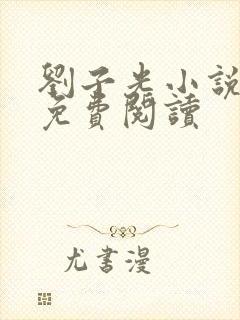 劉子光小說
免費閱讀
尤書漫